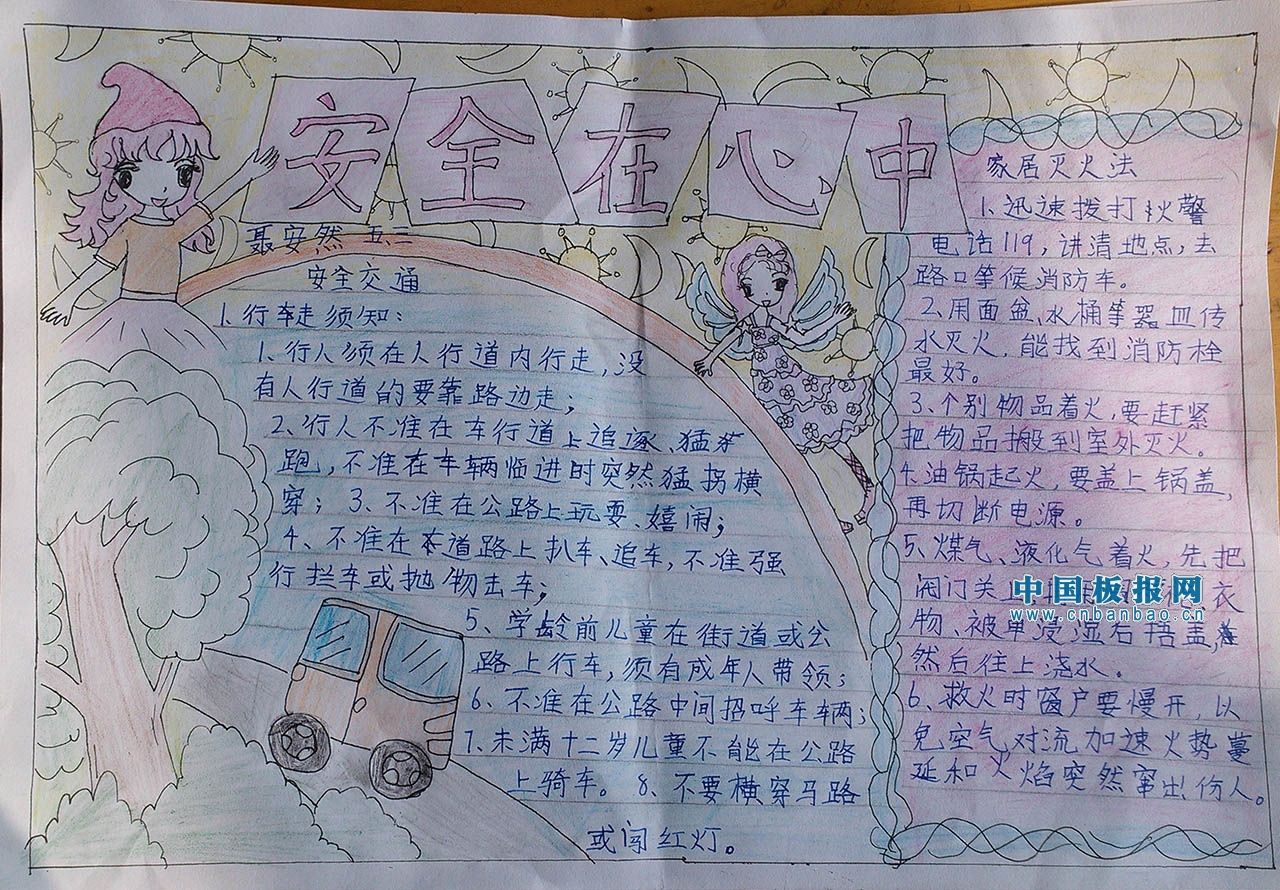 安全在心中
聂安然 五.二
安全交通
1.行走须知:
1.行人须在人行道内行走,没
有人行道的要靠路边走;
2、行人不准在车行道上追逐、猛
跑,不准在车辆临进时突然猛拐横
穿; 3、不准在公路上玩耍、嬉闹;
4、不准在道路上扒车、追车,不准强
行拦车或抛物击车;
5、学龄前儿童在街道或公
路上行车,须有成年人带领;
6、不准在公路中间招呼车辆;
7.未满十二岁儿童不能在公路
上骑车。 8、不要横穿马路
或闯红灯。
家居灭火法
1.迅速拨打火警
电话119,讲清地点,去
路口等候消防车。
2.用面盆、水桶等器皿传
水灭火,能找到消防栓
最好。
3、个别物品着火,要赶紧
把物品搬到室外灭火。
4.油锅起火,要盖上锅盖,
再切断电源。
5、煤气、液化气着火,先把
闭门关 衣
物、被单浸湿后捂盖,
然后往上浇水。
6、救火时窗户要慢开,以
免空气对流加速火势蔓
延和火焰突然窜出伤人。
中国板报网
www.cnbanbao.cn